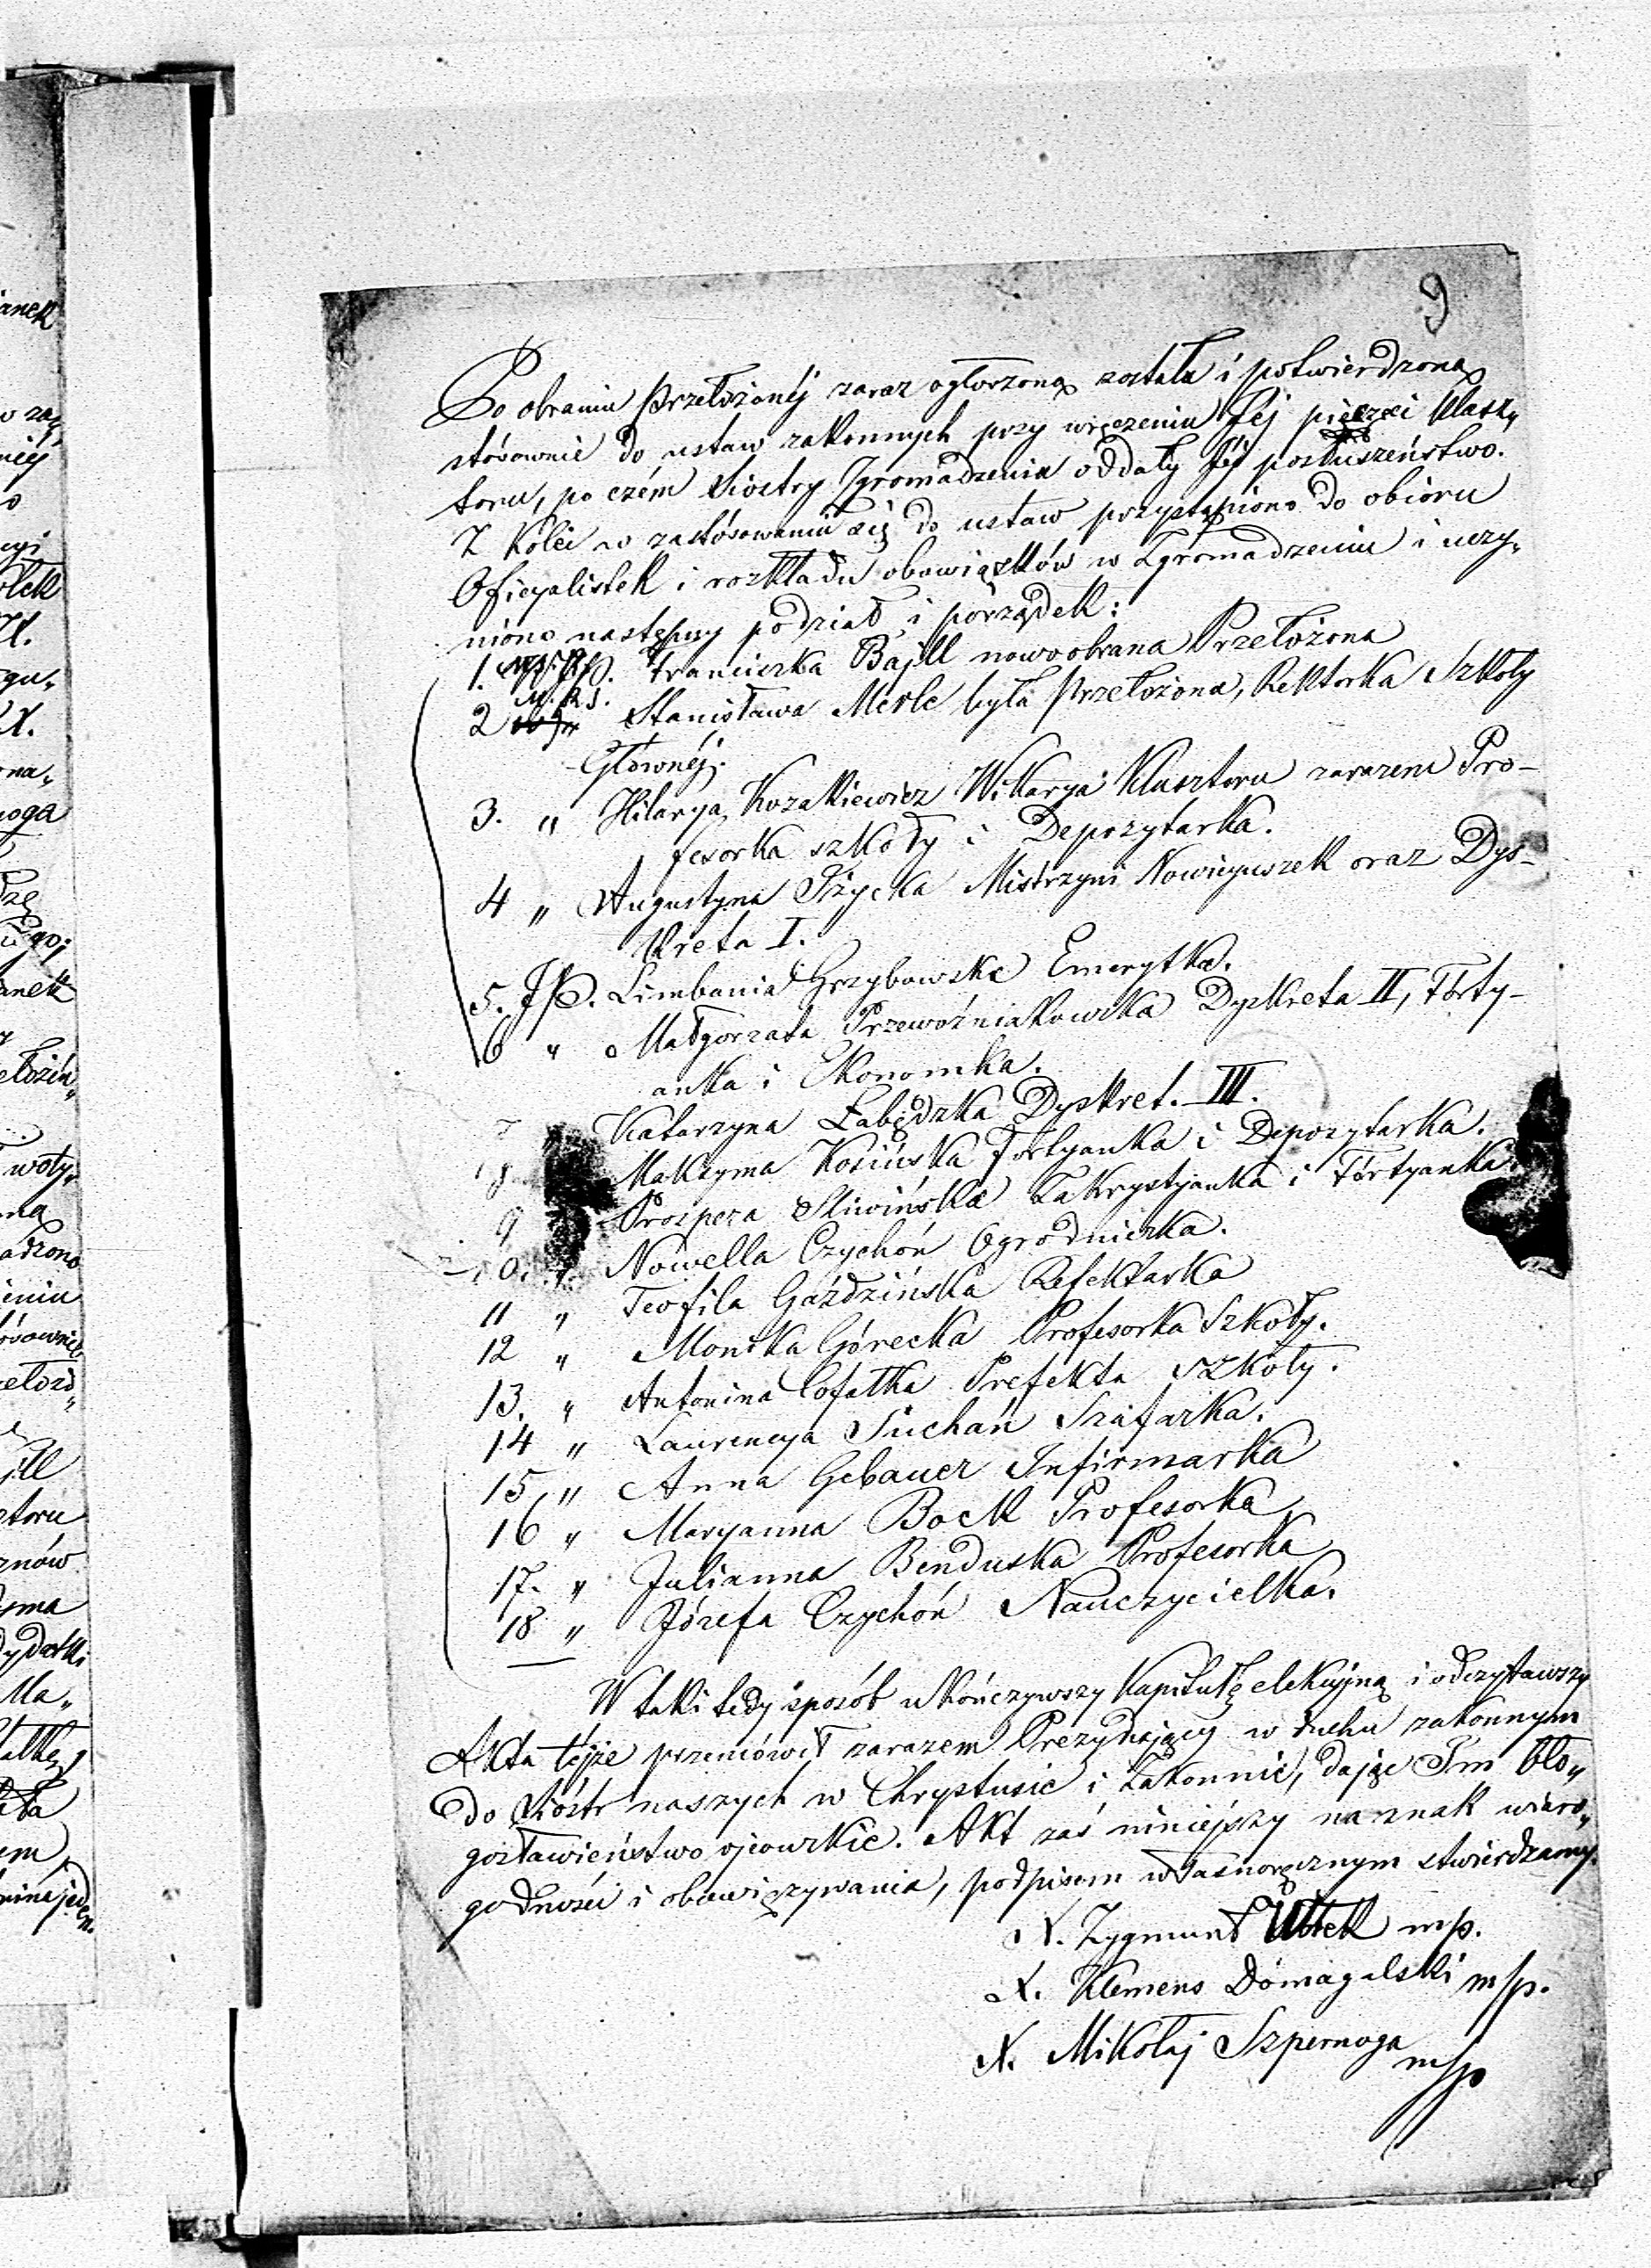 9
Po obraniu Przełożonéj zaraz ogłoszoną została i potwierdzoną
stósownie do ustaw zakonnych przy wręczeniu Jej pieczęci klasz„
toru, po czém Siostry Zgromadzenia oddały Jéj posłuszeństwo.
Z kolei w zastósowaniu się do ustaw przystąpiono do obioru
Oficyalistek i rozkładu obowiązków w Zgromadzeniu i uczy„
niono następny podział i porządek:
1. Franciszka Bajll nowoobrana Przełożona
2 M. R. S. Stanisława Merle była Przełożona, Rektorka Szkoły
Głównéj.
3. „ Hilarya Kozakiewicz Wikarya Klasztoru zarazem Pro-
fesorka szkoły i Depozytarka.
4 „ Augustyna Iżycka Mistrzyni Nowicyuszek oraz Dys-
kreta I.
5. JP. Limbania Grzybowska Emerytka.
6 „ Małgorzata Przewoźniakowska Dyskreta II, Forty-
anka i Ekonomka.
7 „ Katarzyna Łabędzka Dyskret. III.
8 Maksyma Kosińska Fortyanka i Depozytarka.
9 Prospera Sliwińska Zakrystyanka i Fórtyanka.
10. „ Nowella Czychoń Ogrodniczka.
11 „ Teofila Gaździńska Refektarka
12 „ Monika Górecka Profesorka Szkoły.
13. „ Antonina Cofałka Prefekta szkoły.
14 „ Laurencya Suchań Szafarka.
15 „ Anna Gebauer Infirmarka
16 „ Maryanna Bock Profesorka
17. „ Julianna Benduska Profesorka
18 „ Józefa Czychoń Nauczycielka.
W taki tedy sposób ukończywszy Kapitułę elekcyjną i odczytawszy
Akta tejże przemówił zarazem Prezydujący w duchu zakonnym
do Sióstr naszych w Chrystusie i Zakonnie, dając Im bło„
gosławieństwo ojcowskie. Akt zaś niniejszy na znak wiaro„
godności i obowiązywania, podpisem własnoręcznym stwierdzamy.
X. Zygmunt mp.
X. Klemens Domagalski m/p.
X. Mikołaj Szpernoga
m/p